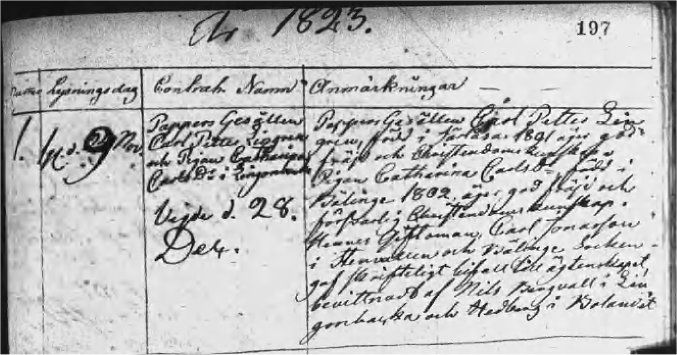 År 1823.
197
Lysningsdag Contrah. Namn Anmärkningar
1. d. 9 Nov.
Pappers Gesällen
Carl Petter
och Pigan Catharina
Carlsdr i
Vigde d. 28.
Dec.
Pappers Gesällen Carl Petter Lin
gren, född i 1801 äger god
frägd och Christendoms kunskap
Pigan Catharina Carlsdr född i
Bälinge 1802 äger god frägd och
förstånd i Christendomskunskap.
Hennes Giftoman, Carl Jonasson
i och Bälinge Socken
gaf skrifteligt bifall till ägtenskapet
bevittnadt af Nils Bergvall i Lin
gonbacka och Hedberg i